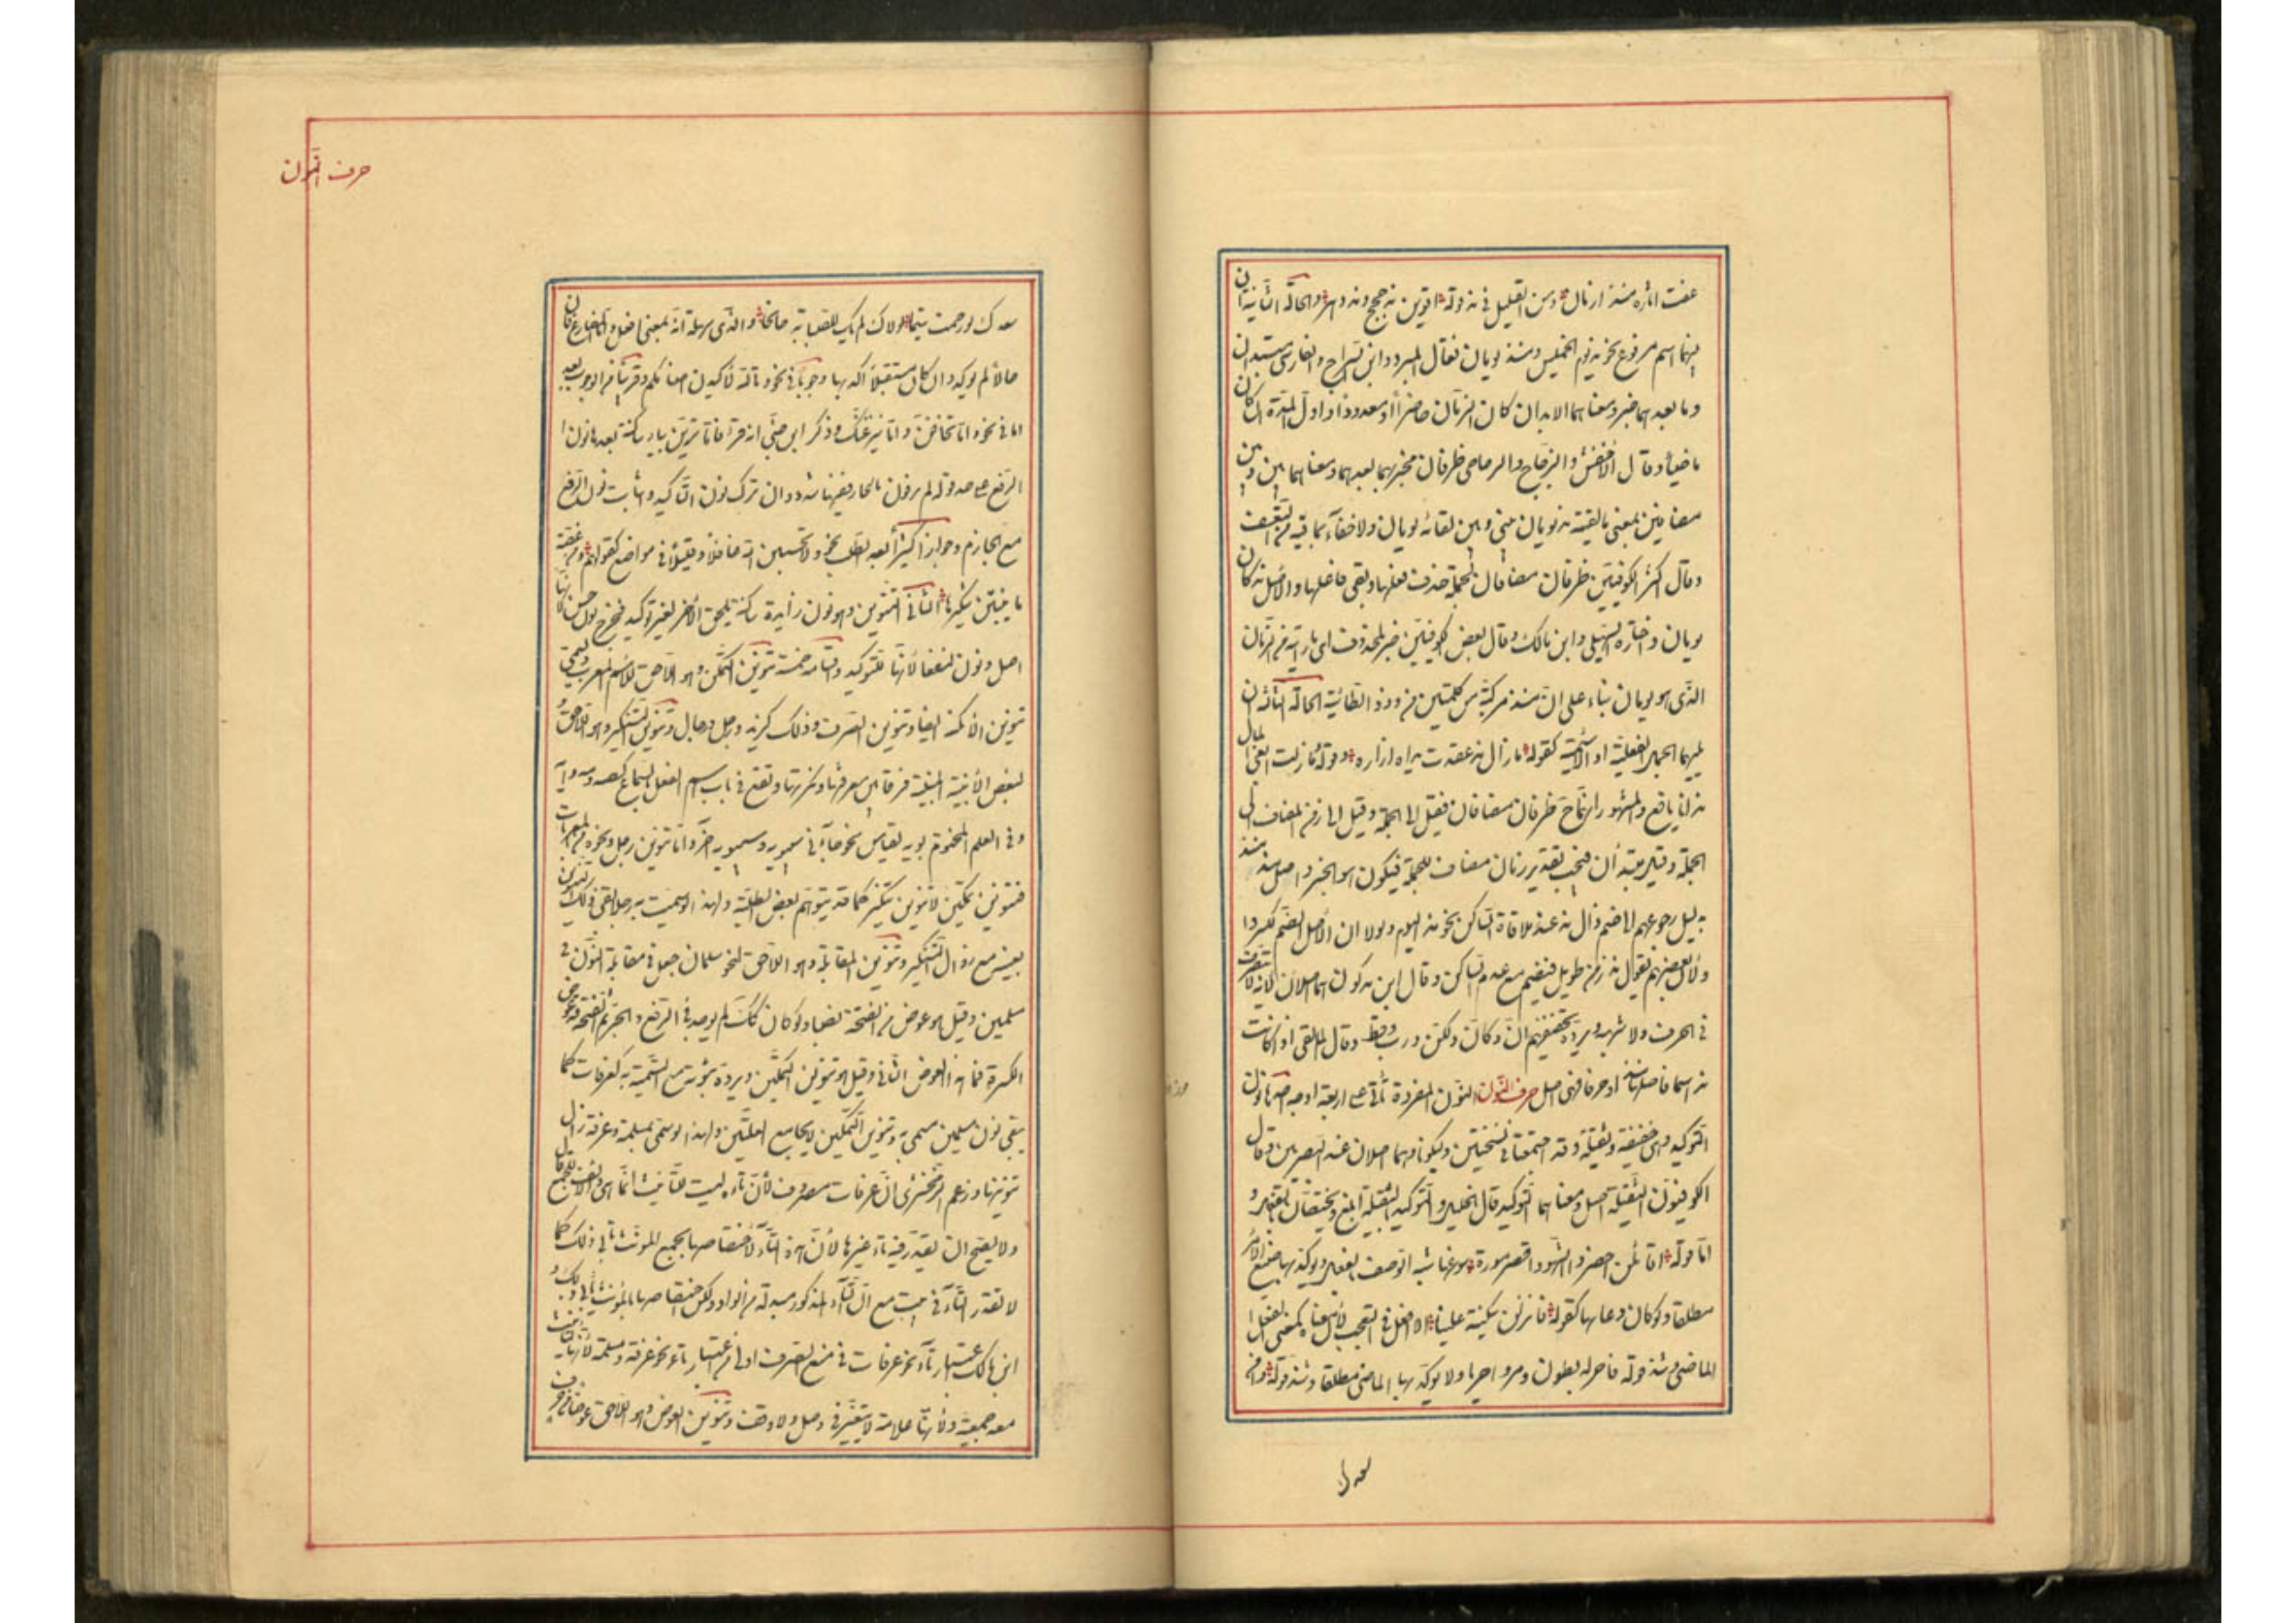 عفت آثاره منذ ازمان ومن القليل في مذ قوله اقوين مذ حجج ومذ دهر والحالة الثانية ان
يليهما اسم مرفوع نحو مذ يوم الخميس ومنذ يومان فقال المبرد وابن السراج والفارسي مبتدان
وما بعدهما خبر ومعناهما الامد ان كان الزمان حاضرا او معدودا واول المدة ان كان
ماضيا وقال الأخفش والزجاج والزجاجي ظرفان مخبر بهما عما بعدهما ومعناهما بين وبين
مضافين فمعنى ما لقيته مذ يومان بيني وبين لقائه يومان ولا خفاء بما فيه من التعسف
وقال اكثر الكوفيين ظرفان مضافان لجملة حذف فعلها وبقي فاعلها والأصل مذ كان
يومان واختاره السهيلي وابن مالك وقال بعض الكوفيين خبر لمحذوف اى ما رأيته من الزمان
الذي هو يومان بناء على ان منذ مركبة من كلمتين من وذو الطائية الحالة الثالثة ان
يليهما الجمل الفعلية او الأسمية كقوله ما زال مذ عقدت يداه ازاره وقوله وما زلت ابغي المال
مذ انا يافع والمشهور انهما ح ظرفان مضافان فقيل الى الجملة وقيل الى زمن المضاف الى
الجملة وقيل مبتدأن فيجب تقدير زمان مضاف للجملة فيكون هو الخبر واصل مذ منذ
بدليل رجوعهم الى ضم ذال مذ عند ملاقاة الساكن نحو مذ اليوم ولولا ان الأصل الضم لكسروا
ولأن بعضهم يقول مذ زمن طويل فيضم مع عدم الساكن وقال ابن ملكون هما اصلان لأنه لا يتصرف
في الحرف ولا شبهه ويرده تخفيفهم ان وكان ولكن ورب وقط وقال المالقي اذا كانت
مذ اسما فاصلها منذ او حرفا فهي اصل حرف النون النون المفردة تأتي على اربعة اوجه احدها نون
التوكيد وهي خفيفة وثقيلة وقد اجتمعتا في ليسجنن وليكونا وهما اصلان عند البصريين وقال
الكوفيون الثقيلة اصل ومعناهما التوكيد قال الخليل والتوكيد بالثقيلة ابلغ ويختصان بالفعل و
اما قوله اقائلن احضروا الشهودا فضرورة سوغها شبه الوصف بالفعل ويوكد بهما صيغ الامر
مطلقا ولو كان دعائيا كقوله فانزلن سكينة علينا الا افعل في التعجب لأن معناه كمعنى الفعل
الماضي وشذ قوله فاحر به بطول فقر واحريا ولا يوكد بهما الماضي مطلقا وشذ قوله دامن
سعدك
حرف النون
سعدك لو رحمت متيما لولاك لم يك للصبابة جانحا والذي سهله انه بمعنى افعل واما المضارع فان كان
حالا لم يوكد وان كان مستقبلا اكد بهما وجوبا في نحو وتالله لأكيدن اصنامكم وقريبا من الوجوب بعد
اما في نحو واما تخافن واما ينزغنك وذكر ابن جني انه قرء فاما ترين بياء ساكنة بعدها نون
الرفع على حد قوله لم يوفون بالجار ففيها شذوذان ترك نون التأكيد واثبات نون الرفع
مع الجازم وجوازا كثيرا بعد الطلب نحو ولا تحسبن الله غافلا وقليلا في مواضع كقولهم ومن عضة
ما ينبتن شكيرها الثاني التنوين وهو نون زايدة ساكنة تلحق الأخر لغير توكيد فخرج نون حسن لأنها
اصل ونون لنسفعا لأنها للتوكيد واقسامه خمسة تنوين التمكن وهو اللاحق للاسم المعرب ويسمى
تنوين الامكنة ايضا وتنوين الصرف وذلك كزيد ورجل ورجال وتنوين التنكير وهو اللاحق
لبعض الأبنية المبنية فرقا بين معرفتها ونكرتها ويقع في باب اسم الفعل بالسماع كصه ومه وايه
وفي العلم المختوم بويه بقياس نحو جاءني سيبويه وسيبويه آخر واما تنوين رجل ونحوه من المعربات
فتنوين تمكين لا تنوين تنكير كما قد يتوهم بعض الطلبة ولهذا لو سميت به رجلا بقي ذلك التنوين
بعينه مع زوال التنكير وتنوين المقابلة وهو اللاحق لنحو مسلمات جعل في مقابلة النون في
مسلمين وقيل هو عوض من الفتحة نصبا ولو كان كك لم يوجد في الرفع والجر ثم الفتحة قد عوض
الكسرة فما هذا العوض الثاني وقيل هو تنوين التمكين ويرده ثبوته مع التسمية به كعرفات كما
يبقى نون مسلمين مسمى به وتنوين التمكين لا يجامع العلتين ولهذا لو سمى بمسلمة وعرفة زال
تنوينهما وزعم الزمخشرى ان عرفات مصروف لأن تاءه ليست للتأنيث انما هي والالف للجمع قال
ولا يصح ان يقدر فيه تاء غيرها لأن هذه التاء لأختصاصها بجمع المونث تأبى ذلك كما
لا تقدر التاء في بنت مع ان التاء المذكورة مبدلة من الواو ولكن اختصاصها بالمؤنث يأبى ذلك و
ابن مالك اعتبار تاء نحو عرفات في منع الصرف اولى من اعتبار تاء نحو عرفة ومسلمة لأنها لتأنيث
معه جمعية ولأنها علامة لا تتغير في وصل ولا وقف وتنوين العوض وهو اللاحق عوضا من حرف